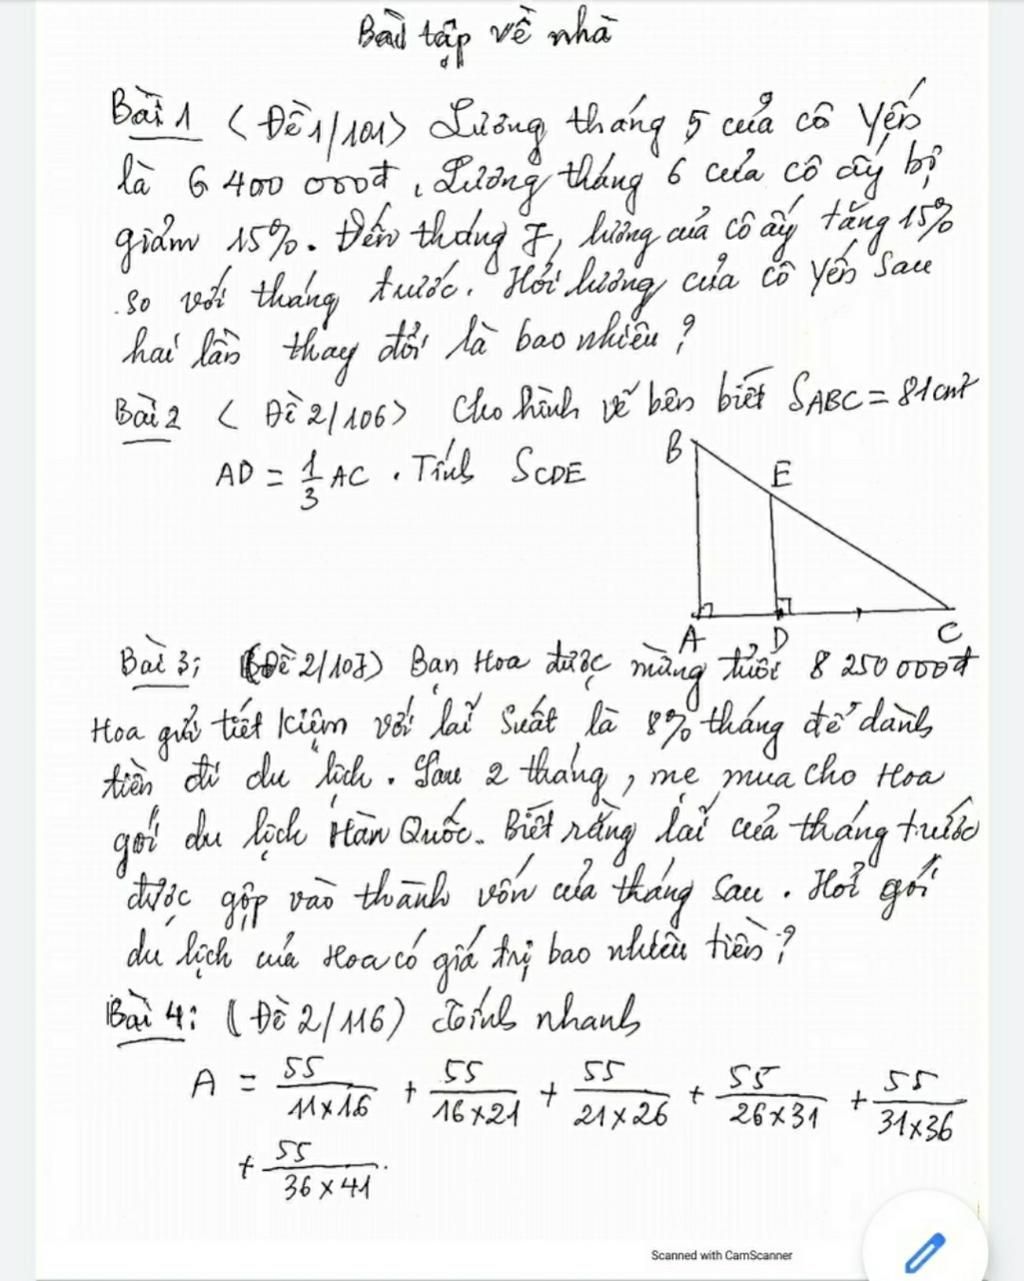 Bài tập về nhà
Bài 1 < Đề 1/101> Lương tháng 5 của cô Yến
là 6 400 000đ, Lương tháng 6 của cô ấy bị
giảm 15%. Đến tháng 7, lương của cô ấy tăng 15%
so với tháng trước. Hỏi lương của cô Yến sau
hai lần thay đổi là bao nhiêu?
Bài 2 < Đề 2/106> Cho hình vẽ bên biết SABC = 81cm²
AD = 1/3 AC. Tính SCDE
B
E
A D C
Bài 3: (Đề 2/107) Bạn Hoa được mừng tuổi 8 250 000đ
Hoa gửi tiết kiệm với lãi suất là 8% tháng để dành
tiền đi du lịch. Sau 2 tháng, mẹ mua cho Hoa
gói du lịch Hàn Quốc. Biết rằng lãi của tháng trước
được gộp vào thành vốn của tháng sau. Hỏi gói
du lịch của Hoa có giá trị bao nhiêu tiền?
Bài 4: (Đề 2/116) Tính nhanh
A = 55/11×16 + 55/16×21 + 55/21×26 + 55/26×31 + 55/31×36
+ 55/36×41.
Scanned with CamScanner